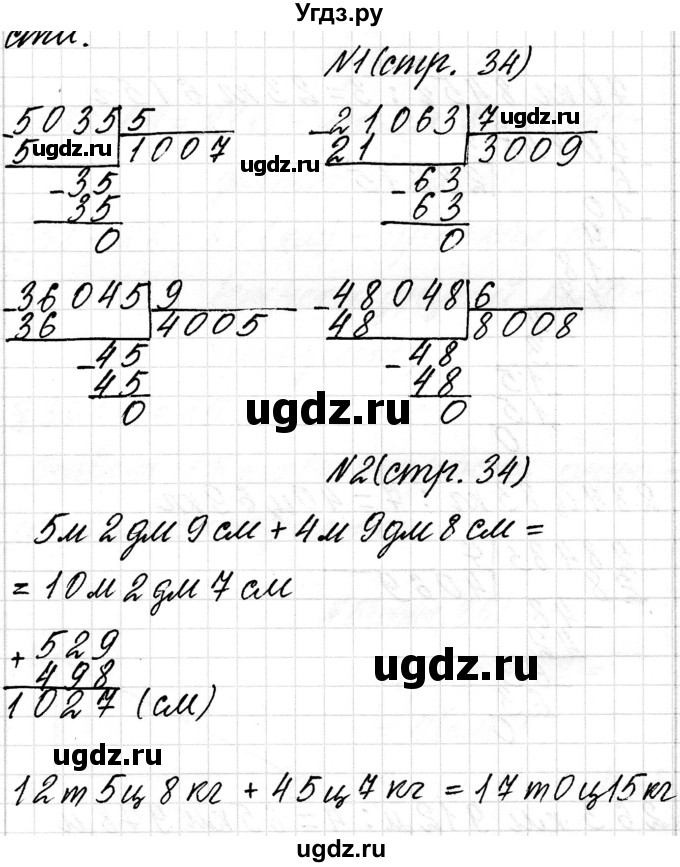 Угдз.ру
сти.
№1(стр. 34)
-5035|5
5 ugdz.ru 1007
-35
35
0
-21063|7 ugdz.ru
ugdz.ru 21 3009
-63
63
0
-36045|9
36 4005
-45
45
0
-48048|6
48 8008
-48
48
0
ugdz.ru
№2(стр. 34)
5м 2дм 9см + 4м 9дм 8см =
= 10м 2дм 7см
+529
498
1027 (см)
ugdz.ru
ugdz.ru
12т 5ц 8кг + 45ц 7кг = 17т 0ц 15кг
ugdz.ru